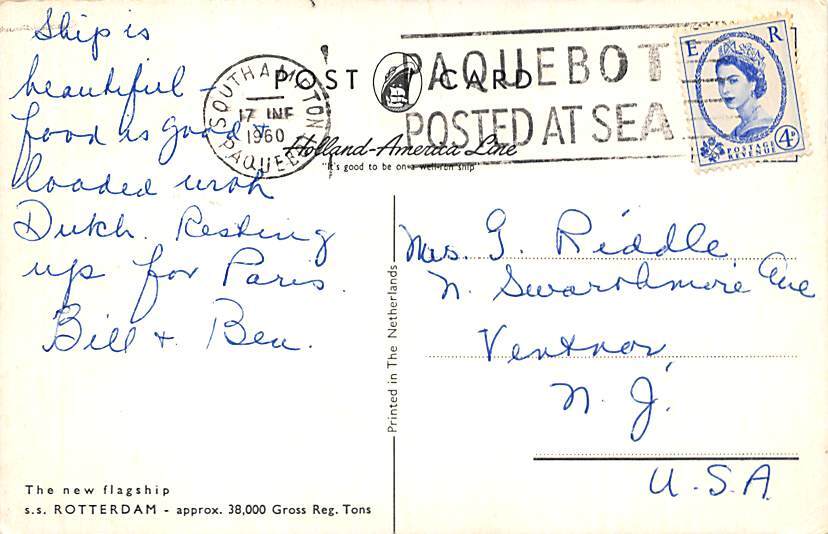 Ship is
beautiful -
food is good +
loaded with
Dutch. Resting
up for Paris.
Bill + Bea.
POST CARD
Holland-America Line
"It's good to be on a well-run ship"
SOUTHAMPTON
17 1960
PAQUEBOT
PAQUEBOT
POSTED AT SEA
E R
POSTAGE
REVENUE
4D
Printed in The Netherlands
Mrs. G. Riddle
N. Swarthmore Ave
Ventnor,
N. J.
U. S. A.
The new flagship
s.s. ROTTERDAM - approx. 38,000 Gross Reg. Tons